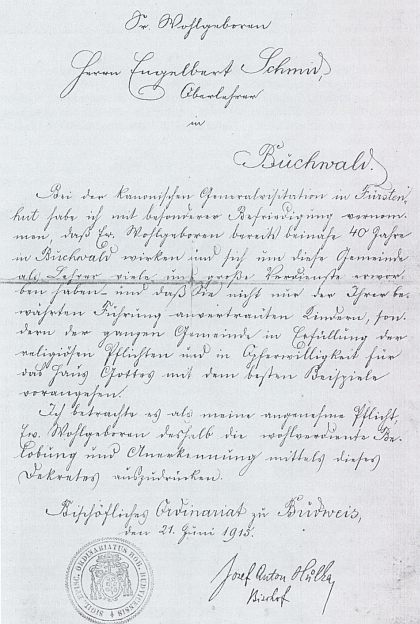 Sr. Wohlgeboren
Herrn Engelbert Schmid,
Oberlehrer
in
Buchwald.
Bei der kanonischen Generalvisitation in Fürsten-
hut habe ich mit besonderer Befriedigung vernom-
men, daß Ew. Wohlgeboren bereits beinahe 40 Jahre
in Buchwald wirken und sich um diese Gemeinde
als Lehrer viele und große Verdienste erwor-
ben haben und daß Sie nicht nur der Ihrer be-
währten Führung anvertrauten Kindern, son-
dern der ganzen Gemeinde in Erfüllung der
religiösen Pflichten und in Opferwilligkeit für
das Haus Gottes mit dem besten Beispiele
vorangehen.
Ich betrachte es als meine angenehme Pflicht,
Ew. Wohlgeboren deshalb die wohlverdiente Be-
lobung und Anerkennung mittels dieses
Dekretes auszudrücken.
Bischöfliches Ordinariat zu Budweis,
den 21. Juni 1915.
Josef Anton Hulka
Bischof